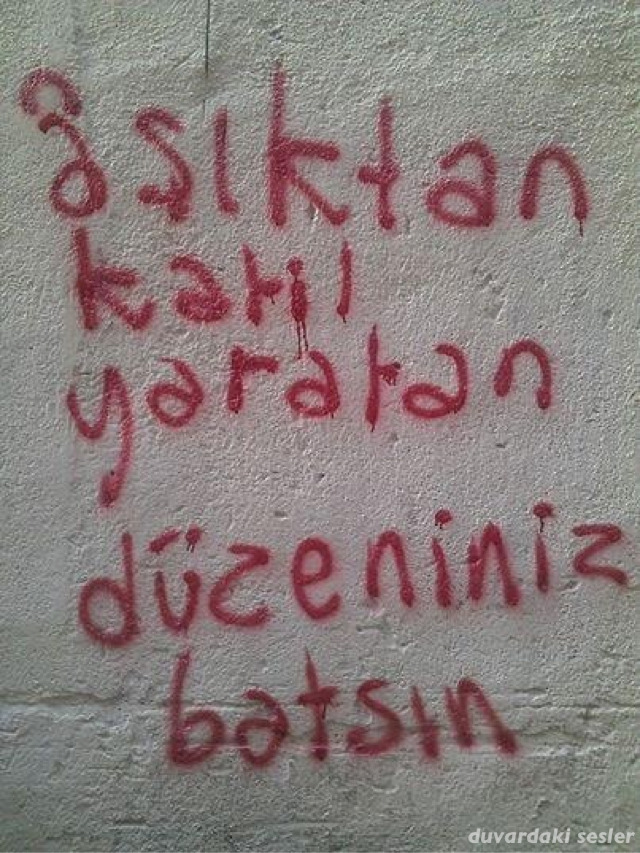 âsıktan
katil
yaratan
düzeniniz
batsın
duvardaki sesler